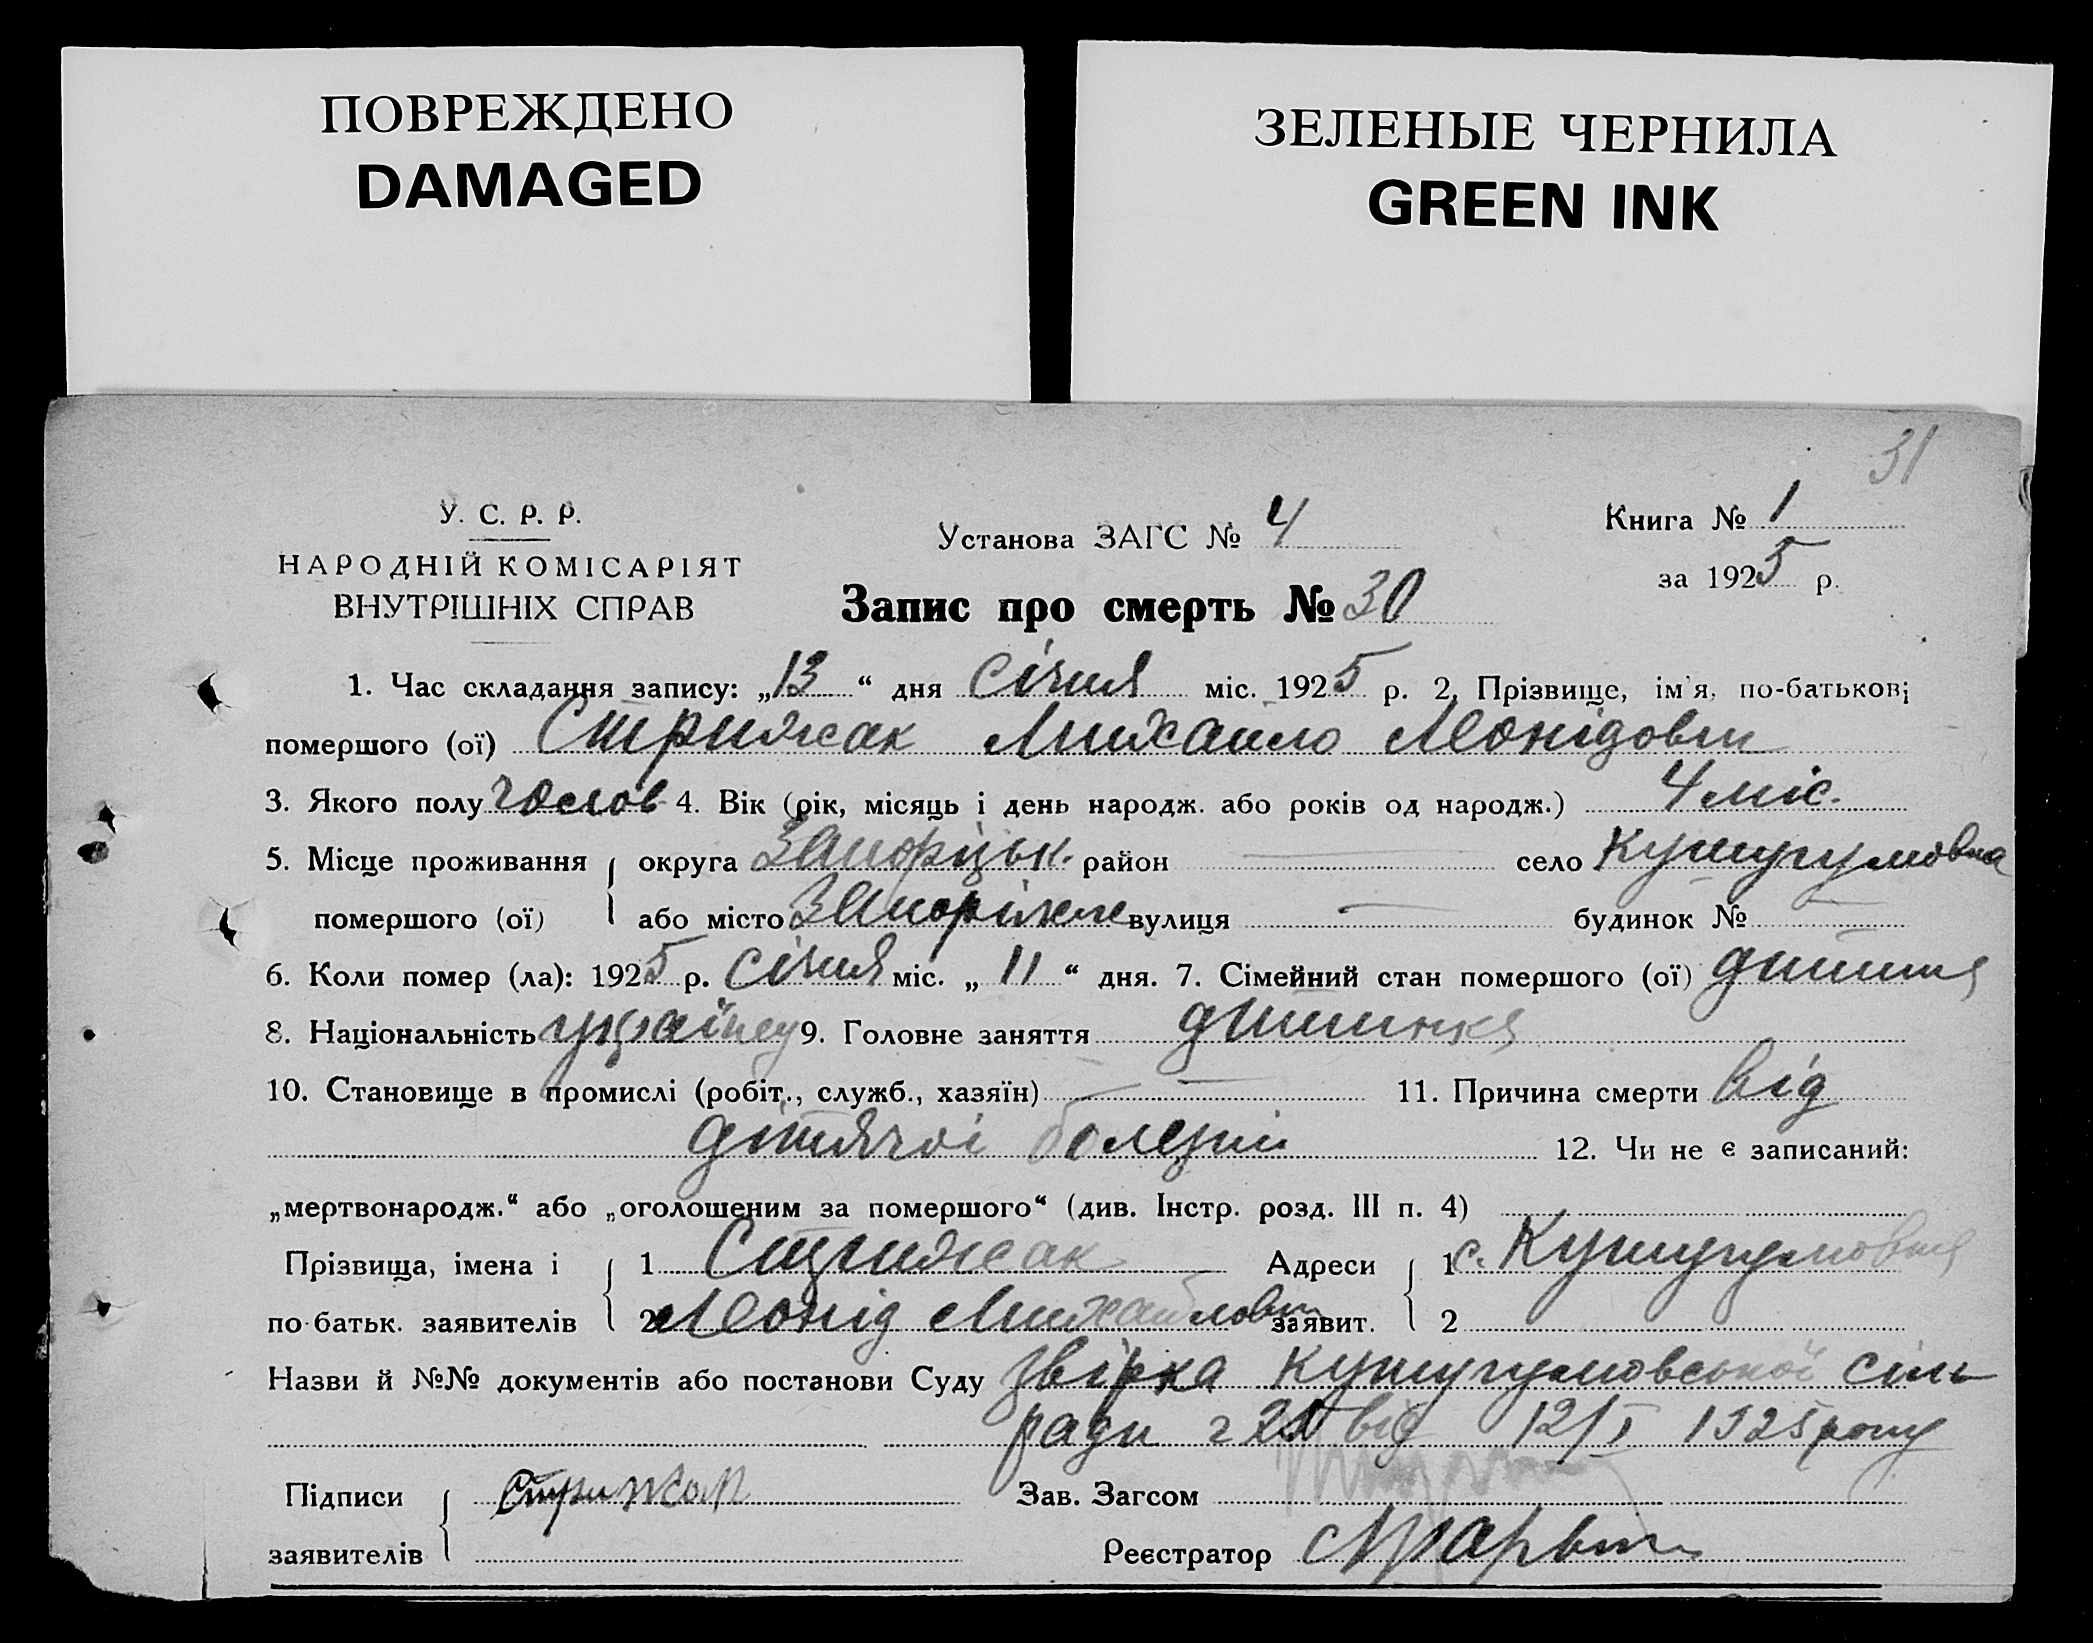 ПОВРЕЖДЕНО
DAMAGED
ЗЕЛЕНЫЕ ЧЕРНИЛА
GREEN INK
31
У. С. Р. Р.
НАРОДНІЙ КОМІСАРІЯТ
ВНУТРІШНІХ СПРАВ
Установа ЗАГС № 4
Книга № 1
за 1925 р.
Запис про смерть № 30
1. Час складання запису: „13“ дня Січня міс. 1925 р. 2. Прізвище, ім'я, по-батькові
помершого (ої) Стрижак Михайло Леонідович
3. Якого полу чолов 4. Вік (рік, місяць і день народж. або років од народж.) 4 міс.
5. Місце проживання округа Запоріцьк. район — село Кушугумовка
помершого (ої) або місто Запоріжже вулиця — будинок № —
6. Коли помер (ла): 1925 р. Січня міс. „11“ дня. 7. Сімейний стан помершого (ої) дитина
8. Національність 9. Головне заняття дитинка
10. Становище в промислі (робіт., служб., хазяїн) — 11. Причина смерти від
дітячої болезні 12. Чи не є записаний:
„мертвонародж.“ або „оголошеним за помершого“ (див. Інстр. розд. III п. 4)
Прізвища, імена і 1 Стрижак Адреси 1 с. Кушугумовка
по-батьк. заявителів 2 Леонід Михайлович заявит. 2
Назви й №№ документів або постанови Суду Кушугумовської сіль
ради від 12/I 1925 року
Підписи Стрижак Зав. Загсом
заявителів Реєстратор